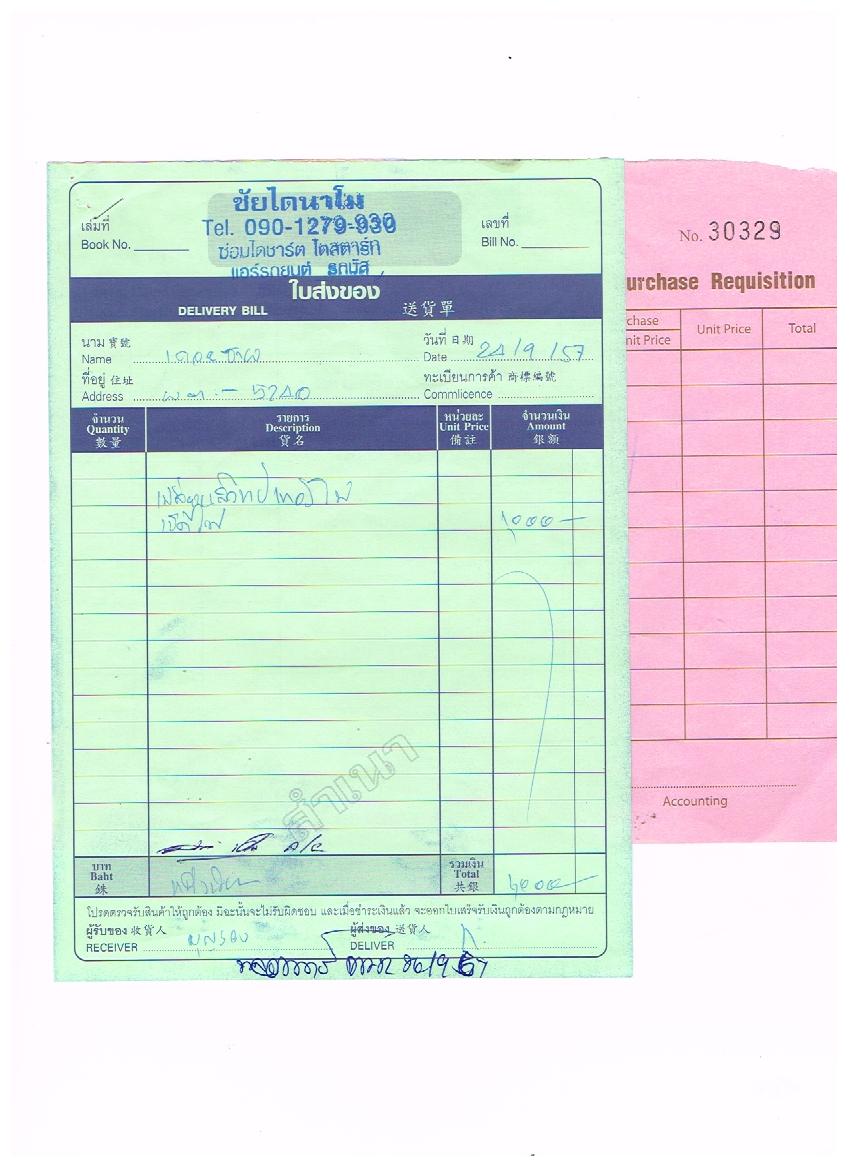 ชัยไดนาโม
เล่มที่
Book No.
Tel. 090-1279-930
ซ่อมไดชาร์ต ไดสตาร์ท
แอร์รถยนต์ รถบัส
เลขที่
Bill No.
ใบส่งของ
DELIVERY BILL 送貨單
นาม 寶號
Name
วันที่ 日期
Date 24/9/57
ที่อยู่ 住址
Address 5240
ทะเบียนการค้า 商標編號
Commlicence
จำนวน
Quantity
數量
รายการ
Description
貨名
หน่วยละ
Unit Price
備註
จำนวนเงิน
Amount
銀額
1,000 -
สำเนา
บาท
Baht
銖
รวมเงิน
Total
共銀
1,000
โปรดตรวจรับสินค้าให้ถูกต้อง มิฉะนั้นจะไม่รับผิดชอบ และเมื่อชำระเงินแล้ว จะออกใบเสร็จรับเงินถูกต้องตามกฎหมาย
ผู้รับของ 收貨人
RECEIVER
ผู้ส่งของ 送貨人
DELIVER
No. 30329
urchase Requisition
chase
nit Price
Unit Price
Total
Accounting